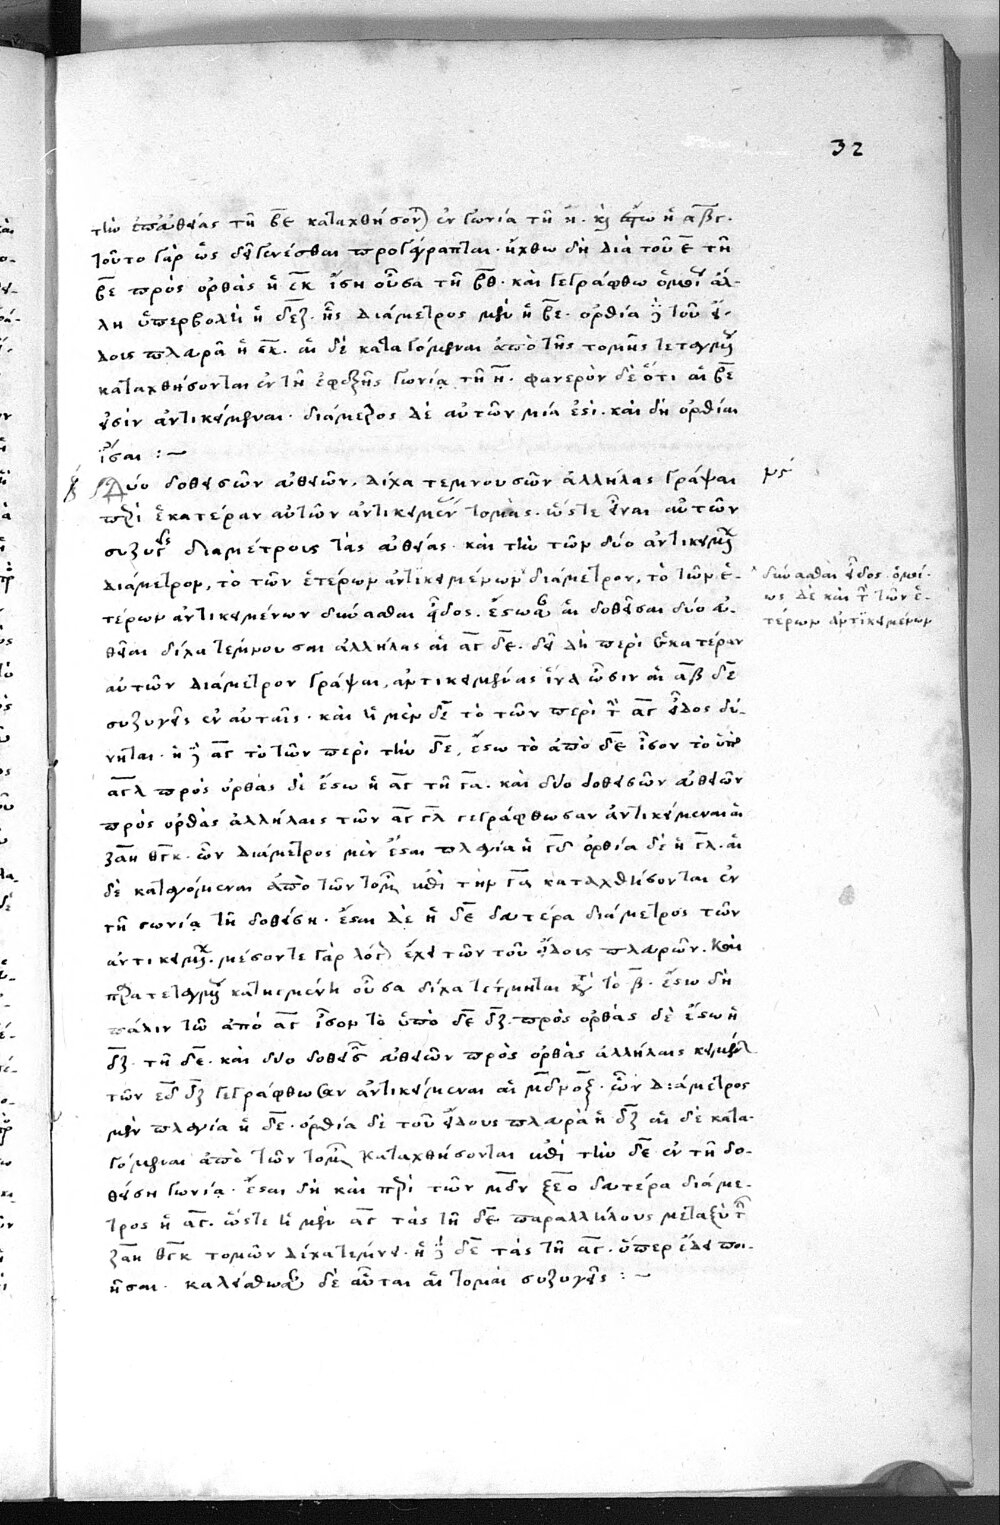 32
τὴν ἐπ' εὐθείας τῇ βε καταχθήσονται ἐν γωνίᾳ τῇ η. καὶ ἔστω ἡ αβγ.
τοῦτο γὰρ ὡς δεῖ γενέσθαι προγέγραπται. ἤχθω δὴ διὰ τοῦ ε τῇ
βε πρὸς ὀρθὰς ἡ εκ ἴση οὖσα τῇ βθ. καὶ γεγράφθω ὁμοίως ἄλ-
λη ὑπερβολὴ ἡ δεζ. ἧς διάμετρος μὲν ἡ βε. ὀρθία δὲ τοῦ εἴ-
δους πλευρὰ ἡ εκ. αἱ δὲ καταγόμεναι ἀπὸ τῆς τομῆς τεταγμένως
καταχθήσονται ἐν τῇ ἐφεξῆς γωνίᾳ τῇ η. φανερὸν δὲ ὅτι αἱ βε
εἰσὶν ἀντικείμεναι. διάμετρος δὲ αὐτῶν μία ἐστί. καὶ δὴ ὀρθίαι
ἴσαι :~
Δύο δοθεισῶν εὐθειῶν, δίχα τεμνουσῶν ἀλλήλας γράψαι
περὶ ἑκατέραν αὐτῶν ἀντικειμένας τομάς. ὥστε εἶναι αὐτῶν
συζυγεῖς διαμέτρους τὰς εὐθείας. καὶ τὴν τῶν δύο ἀντικειμένων
διάμετρον, τὸ τῶν ἑτέρων ἀντικειμένων διάμετρον, τὸ τῶν ἑ-
τέρων ἀντικειμένων δύνασθαι εἶδος. ἔστωσαν αἱ δοθεῖσαι δύο εὐ-
θεῖαι δίχα τέμνουσαι ἀλλήλας αἱ αγ δε. δεῖ δὴ περὶ ἑκατέραν
αὐτῶν διάμετρον γράψαι, ἀντικειμένας ἵνα ὦσιν αἱ αβ δε
συζυγεῖς ἐν αὐταῖς. καὶ ἡ μὲν δε τὸ τῶν περὶ τὴν αγ εἶδος δύ-
νηται. ἡ δὲ αγ τὸ τῶν περὶ τὴν δε. ἔστω τὸ ἀπὸ δε ἴσον τὸ ὑπὸ
αγλ πρὸς ὀρθὰς δὲ ἔστω ἡ αγ τῇ γλ. καὶ δύο δοθεισῶν εὐθειῶν
πρὸς ὀρθὰς ἀλλήλαις τῶν αγ γλ γεγράφθωσαν ἀντικείμεναι αἱ
ζαη θγκ. ὧν διάμετρος μὲν ἔσται πλαγία ἡ γδ ὀρθία δὲ ἡ γλ. αἱ
δὲ καταγόμεναι ἀπὸ τῶν τομῶν ἐπὶ τὴν γα καταχθήσονται ἐν
τῇ γωνίᾳ τῇ δοθείσῃ. ἔσται δὲ ἡ δε δευτέρα διάμετρος τῶν
ἀντικειμένων. μέσον τε γὰρ λόγον ἔχει τῶν τοῦ εἴδους πλευρῶν. καὶ
παρὰ τεταγμένως κατηγμένη οὖσα δίχα τέτμηται κατὰ τὸ β. ἔστω δὴ
πάλιν τῷ ἀπὸ αγ ἴσον τὸ ὑπὸ δε δζ. πρὸς ὀρθὰς δὲ ἔστω ἡ
δζ. τῇ δε. καὶ δύο δοθεισῶν εὐθειῶν πρὸς ὀρθὰς ἀλλήλαις κειμένων
τῶν εδ δζ γεγράφθωσαν ἀντικείμεναι αἱ μδν οεξ. ὧν διάμετρος
μὲν πλαγία ἡ δε. ὀρθία δὲ τοῦ εἴδους πλευρὰ ἡ δζ αἱ δὲ κατα-
γόμεναι ἀπὸ τῶν τομῶν καταχθήσονται ἐπὶ τὴν δε ἐν τῇ δο-
θείσῃ γωνίᾳ. ἔσται δὴ καὶ περὶ τῶν μδν ξεο δευτέρα διάμε-
τρος ἡ αγ. ὥστε ἡ μὲν αγ τὰς τῇ δε παραλλήλους μεταξὺ τῶν
ζαη θγκ τομῶν δίχα τέμνει. ἡ δὲ δε τὰς τῇ αγ. ὅπερ ἔδει ποι-
ῆσαι. καλείσθωσαν δὲ αὗται αἱ τομαὶ συζυγεῖς :~
δύνασθαι εἶδος. ὁμοί-
ως δὲ καὶ τὴν τῶν ἑ-
τέρων ἀντικειμένων